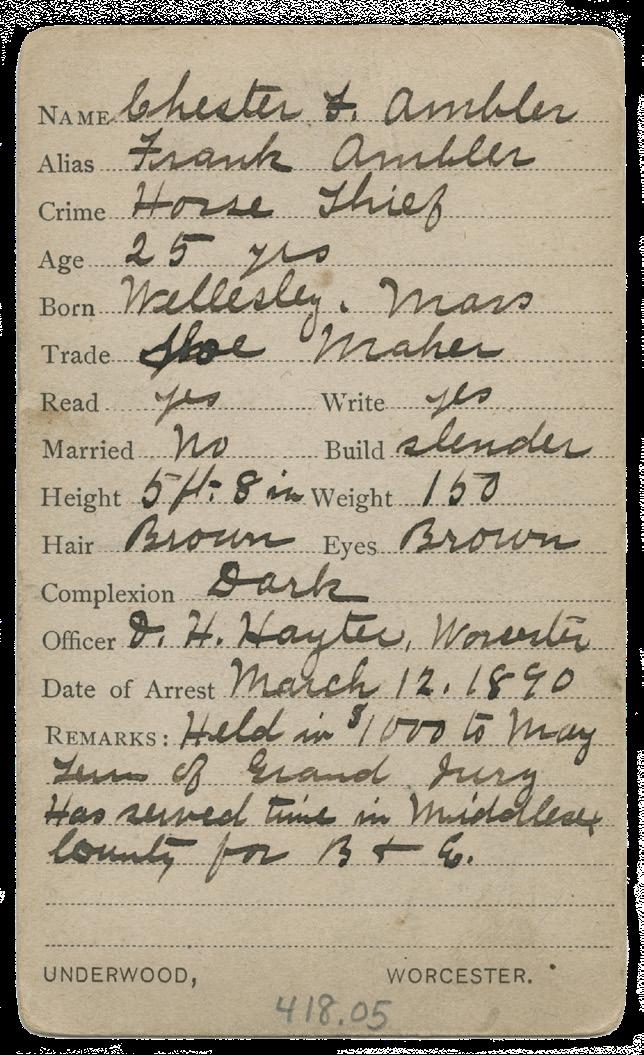 NAME Chester F. Ambler
Alias Frank Ambler
Crime Horse Thief
Age 25 yrs
Born Wellesley. Mass
Trade Shoe Maker
Read yes Write yes
Married No Build slender
Height 5 ft. 8 in Weight 150
Hair Brown Eyes Brown
Complexion Dark
Officer D. H. Hayter, Worcester
Date of Arrest March 12. 1890
REMARKS: Held in $1000 to May
Term of Grand Jury
Has served time in Middlesex
County for B + E.
UNDERWOOD, WORCESTER.
418.05